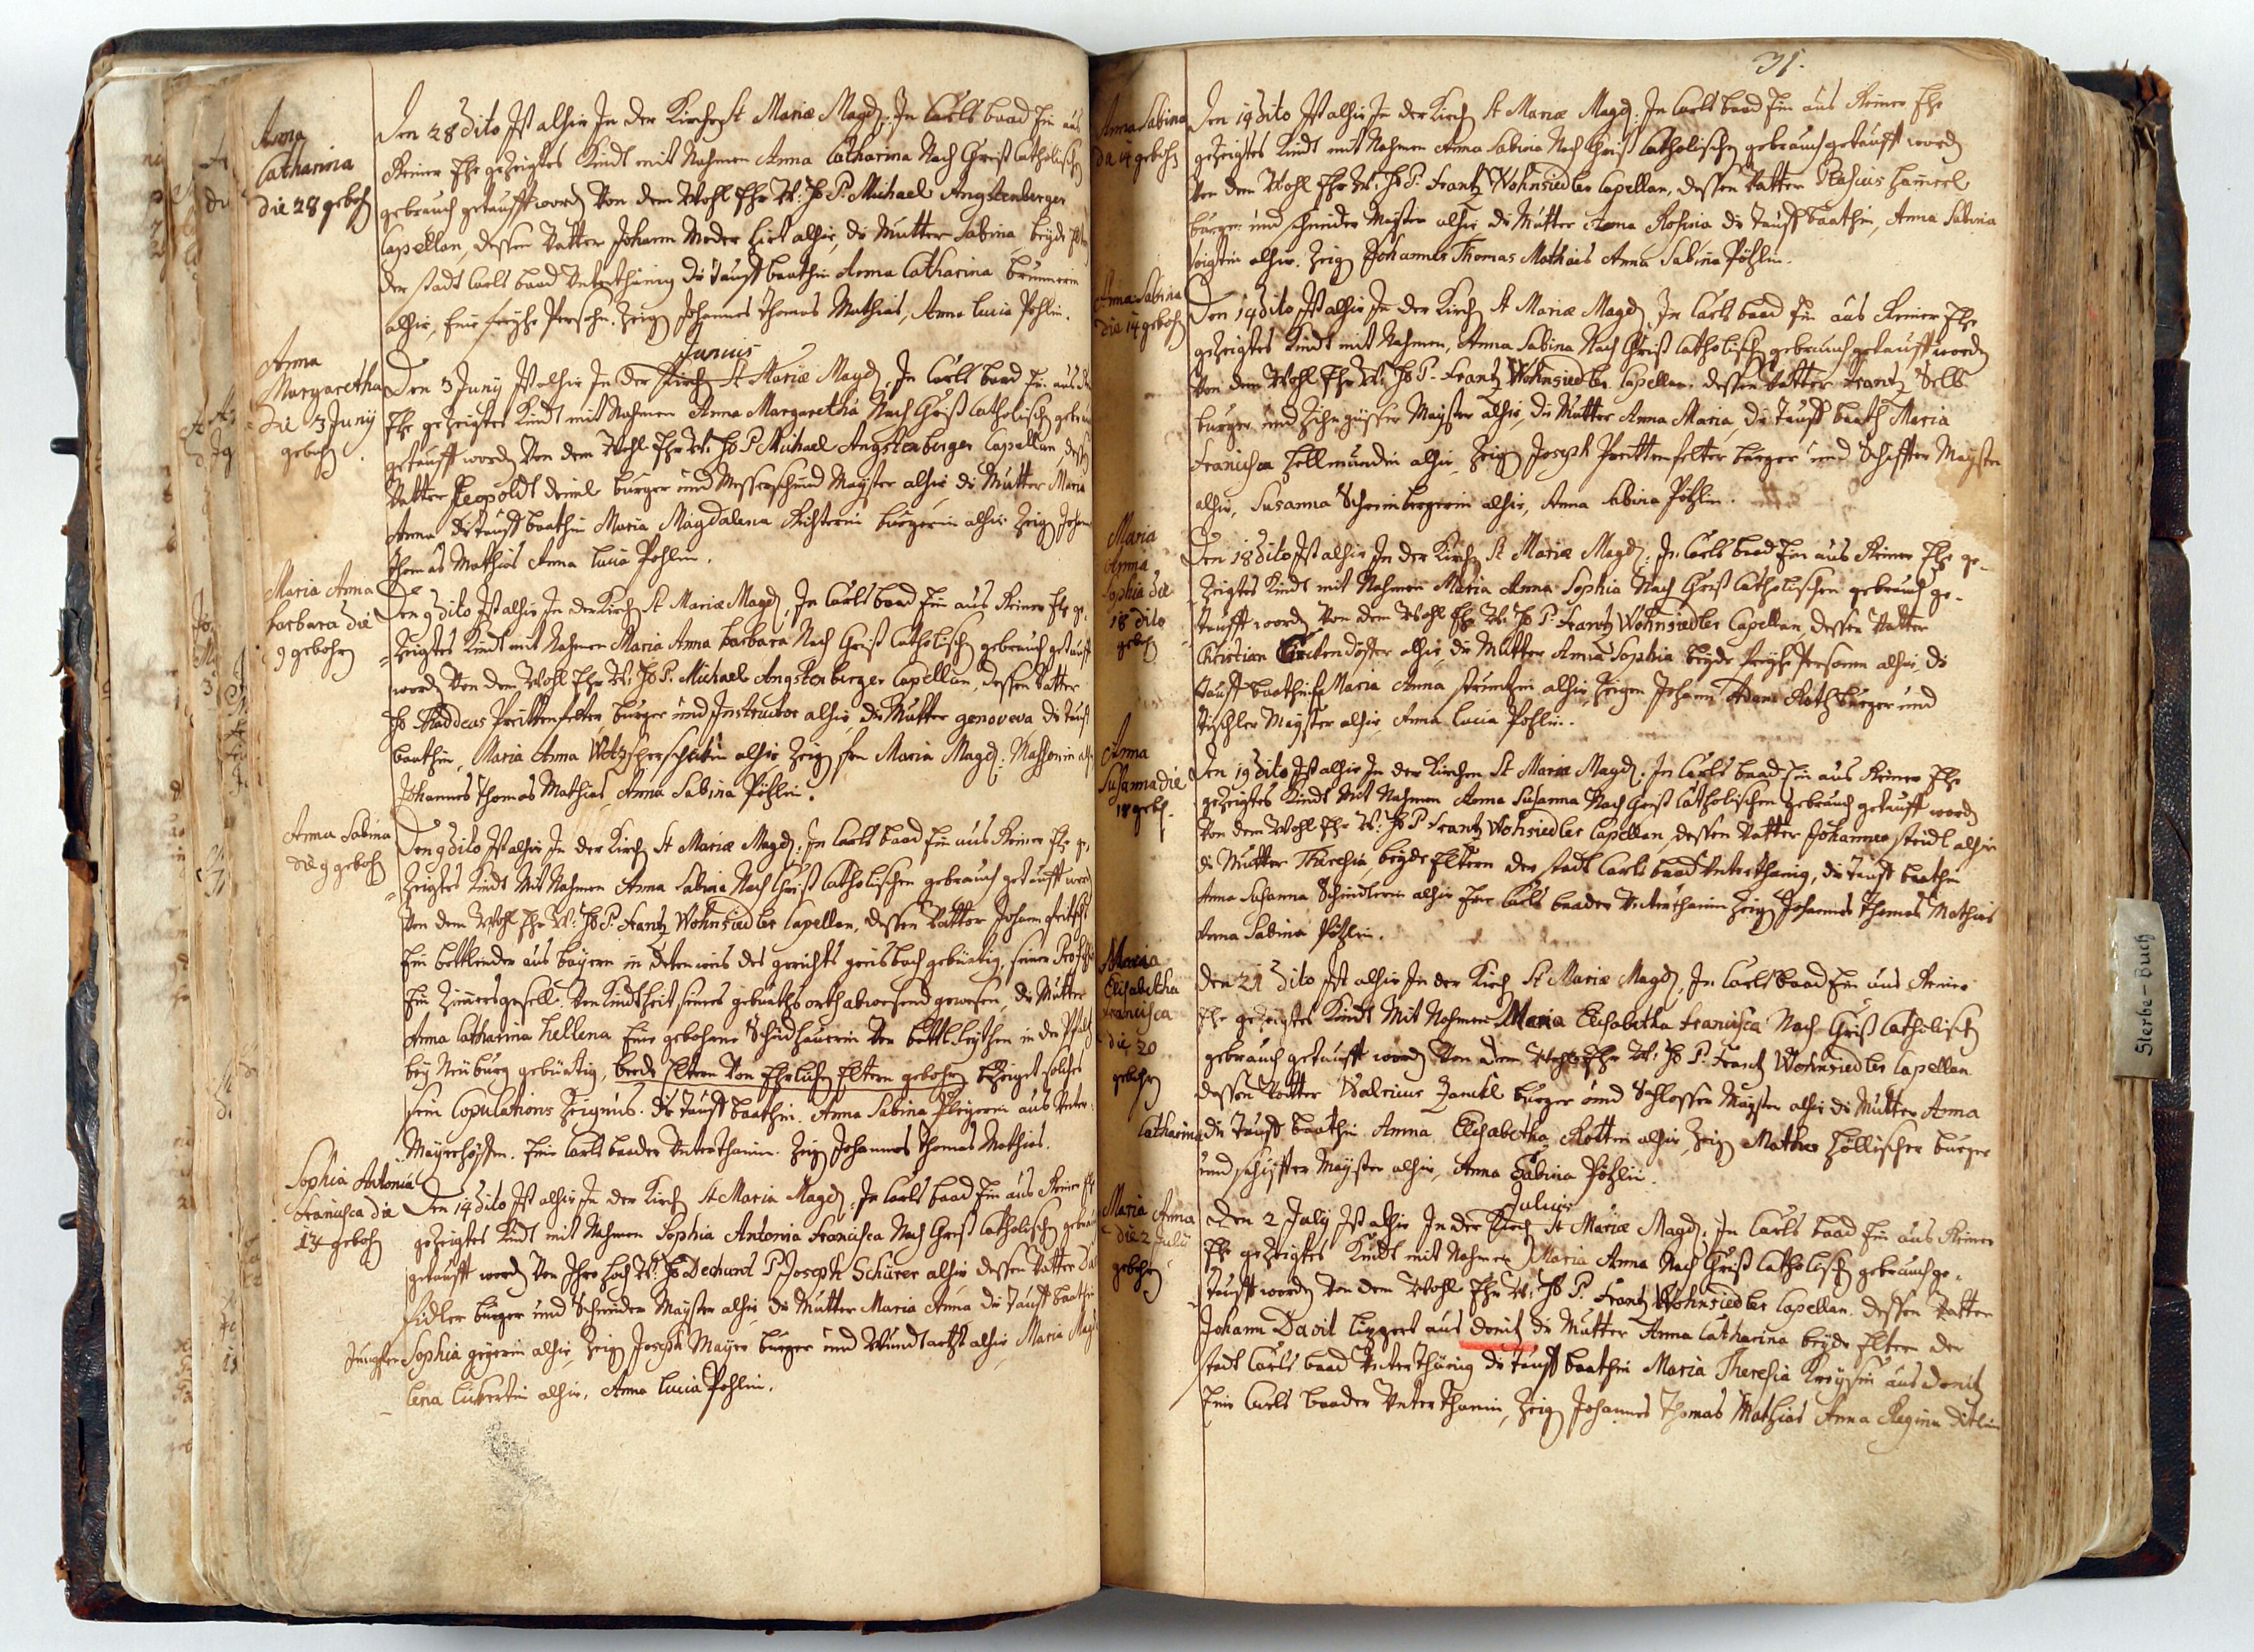 Anna
Catharina
die 28 gebohr
Den 28 dito Ist alhir In der Kirchen St Mariæ Magd: In Carls baad Ein aus
Reiner Ehe gezeigtes Kindt mit Nahmen Anna Catharina Nach Christ Catholischen
gebrauch getaufft worden Von dem Wohl Ehr W: H P. Michael Angstenberger
Capellan, dessen Vatter Johann Moder Hirt alhir, die Mutter Sabina beyde
der stadt Carls baad Unterthänig die tauff baathin Anna Catharina brunnerin
alhir, Eine Persohn. Zeugen Johannes Thomas Mathias, Anna Lucia Pöhlin.
Junius
Anna
Margaretha
die 3 Juny
gebohr
Den 3 Juny Ist alhir In der Kirch St Mariæ Magd. In Carls baad Ein aus
Ehe gezeigtes Kindt mit Nahmen Anna Margaretha Nach Christ Catholisch
getaufft worden Von dem Wohl Ehr W: H P Michael Angstenberger Capellan, dessen
Vatter Leopoldt burger und Messerschmid Mayster alhir die Mutter Maria
Anna die tauff baathin Maria Magdalena Richterin burgerin alhir Zeugen Johann
Thomas Mathias Anna Lucia Pohlin.
Maria Anna
barbara die
9 gebohrn
Den 9 dito Ist alhir In der Kirch St Mariæ Magd, In Carls baad Ein aus Reiner Ehe ge-
Zeigtes Kindt mit Nahmen Maria Anna barbara Nach Christ Catholisch gebrauch getaufft
worden Von dem Wohl Ehr W: H P. Michael Angstenberger Capellan, dessen Vatter
H Thaddeas Prittenfelter, burger und Instructor alhir, die Mutter genoveva, die tauff
baathin, Maria Anna alhir Zeugen Maria Magd:
Johannes Thomas Mathias, Anna Sabina Pöhlin.
Anna Sabina
die 9 gebohr
Den 9 dito Ist alhir In der Kirch St Mariæ Magd. In Carls baad Ein aus Reiner Ehe ge-
Zeigtes Kindt Mit Nahmen Anna Sabina Nach Christ Catholischen gebrauch getaufft
Von dem Wohl Ehr W: H P. Frantz Wohnsiedler Capellan, dessen Vatter Johann
Ein bettlender aus bayern in des gerichts gebürtig, seiner
Ein Zimersgesell. Von Kindtheit seines gebuhrts orth abwesend gewesen, die Mutter
Anna Catharina Hellena Eine gebohrne Von in der Pfaltz
bey Neuburg gebürtig, beede Eltern Von Ehrlichen Eltern gebohrn Zeiget solches
sein Copulations Zeignus. die tauff baathin. Anna Sabina aus Unter
Mayerhöffen. Eine Carls baader Unterthanin. Zeugen Johannes Thomas Mathias.
Sophia Antonia
Francisca die
14 gebohr
Den 14 dito Ist alhir In der Kirch St Maria Magd: In Carls baad Ein aus Reiner
gezeigtes Kindt mit Nahmen Sophia Antonia Francisca Nach Christ Catholischen
getaufft worden Von Ihro Hoch W: H Dechant P Joseph Schürer alhir dessen Vatter
Fidler burger und Schneider Mayster alhir die Mutter Maria Anna die tauff baathin
Jungfer Sophia alhir, Zeugen Joseph Mayer burger und Wundtartzt alhir, Maria
lena alhir, Anna Lucia Pohlin.
31.
Anna Sabina
die 14 gebohr
Den 14 dito Ist alhir In der Kirch St Mariæ Magd: In Carls baad Ein aus Reiner Ehe
gezeigtes Kindt mit Nahmen Anna Sabina Nach Christ Catholischen gebrauch getaufft worden
Von dem Wohl Ehr W: H P. Frantz Wohnsiedler Capellan, dessen Vatter
burger und schneider Mayster alhir die Mutter Anna Rosina die tauff baathin, Anna Sabina
alhir. Zeugen Johannes Thomas Mathias Anna Sabina Pöhlin.
Anna Sabina
die 14 gebohr
Den 14 dito Ist alhir In der Kirch St Mariæ Magd, In Carls baad Ein aus Reiner Ehe
gezeigtes Kindt mit Nahmen, Anna Sabina Nach Christ Catholischen gebrauch getaufft worden
Von dem Wohl Ehr W: H P. Frantz Wohnsiedler Capellan dessen Vatter Frantz
burger und Zihngiesser Mayster alhir, die Mutter Anna Maria, die tauff baath Maria
Francisca alhir, Zeugen Joseph Prittenfelter burger und Mayster
alhir, Susanna alhir, Anna Sabina Pöhlin.
Maria
Anna
Sophia die
18 dito
gebohr
Den 18 dito Ist alhir In der Kirch St Mariæ Magd: In Carls baad Ein aus Reiner Ehe ge-
Zeigtes Kindt mit Nahmen Maria Anna Sophia Nach Christ Catholischen gebrauch ge-
taufft worden Von dem Wohl Ehr W. H P. Frantz Wohnsiedler Capellan, dessen Vatter
Christian alhir die Mutter Anna Sophia beyde Persohnen alhir, die
tauff baathin Maria Anna alhir, Zeugen Johann Adam Roth burger und
Tischler Mayster alhir, Anna Lucia Pohlin.
Anna
Susanna die
18 geboh.
Den 19 dito Ist alhir In der Kirchen St Mariæ Magd. In Carls baad Ein aus Reiner Ehe
gezeigtes Kindt Mit Nahmen Anna Susanna Nach Christ Catholischen gebrauch getaufft worden
Von dem Wohl Ehr W: H P Frantz Wohnsiedler Capellan, dessen Vatter Johannes Steidl alhir
die Mutter Theresia, beyde Eltern der stadt Carls baad Unterthänig, die tauff baathin
Anna Susanna Schindlerin alhir Eine Carls baader Unterthanin Zeugen Johannes Thomas Mathias
Anna Sabina Pöhlin.
Maria
Elisabetha
Francisca
die 20
gebohrn
Den 21 dito Ist alhir In der Kirch St Mariæ Magd, In Carls baad Ein aus Reiner
Ehe gezeigtes Kindt Mit Nahmen Maria Elisabetha Francisca Nach Christ Catholisch
gebrauch getaufft worden Von dem Wohl Ehr W: H P. Frantz Wohnsiedler Capellan
dessen Vatter burger und Schlosser Mayster alhir die Mutter Anna
Catharina die tauff baathin Anna Elisabetha Rottin alhir, Zeugen Matheus burger
und Mayster alhir, Anna Sabina Pöhlin.
Julius
Maria Anna
die 2 July
gebohrn
Den 2 July Ist alhir In der Kirch St Mariæ Magd: In Carls baad Ein aus Reiner
Ehe gezeigtes Kindt mit Nahmen Maria Anna Nach Christ Catholisch gebrauch ge-
taufft worden Von dem Wohl Ehr W: H P. Frantz Wohnsiedler Capellan. dessen Vatter
Johann David Lippert aus donitz die Mutter Anna Catharina beyde Eltern der
stadt Carls baad Unterthänig die tauff baathin Maria Theresia aus donitz
Eine Carls baader Unterthanin, Zeugen Johannes Thomas Mathias Anna Regina
Sterbe-Buch